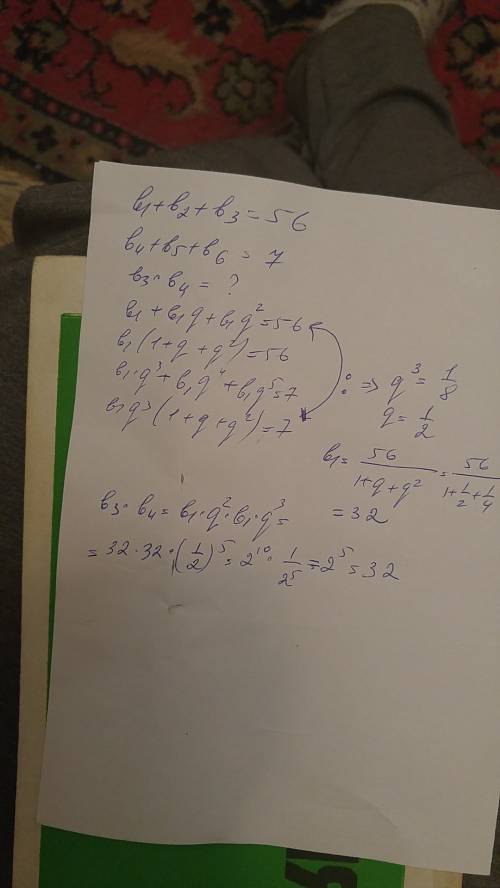 b₁+b₂+b₃=56
b₄+b₅+b₆=7
b₃·b₄=?
b₁+b₁q+b₁q²=56
b₁(1+q+q²)=56
b₁·q³+b₁q⁴+b₁q⁵=7
b₁q³(1+q+q²)=7
: => q³=1/8
q=1/2
b₁=56/(1+q+q²)=56/(1+1/2+1/4)
=32
b₃·b₄=b₁·q²·b₁·q³=
=32·32·(1/2)⁵=2¹⁰·1/2⁵=2⁵=32